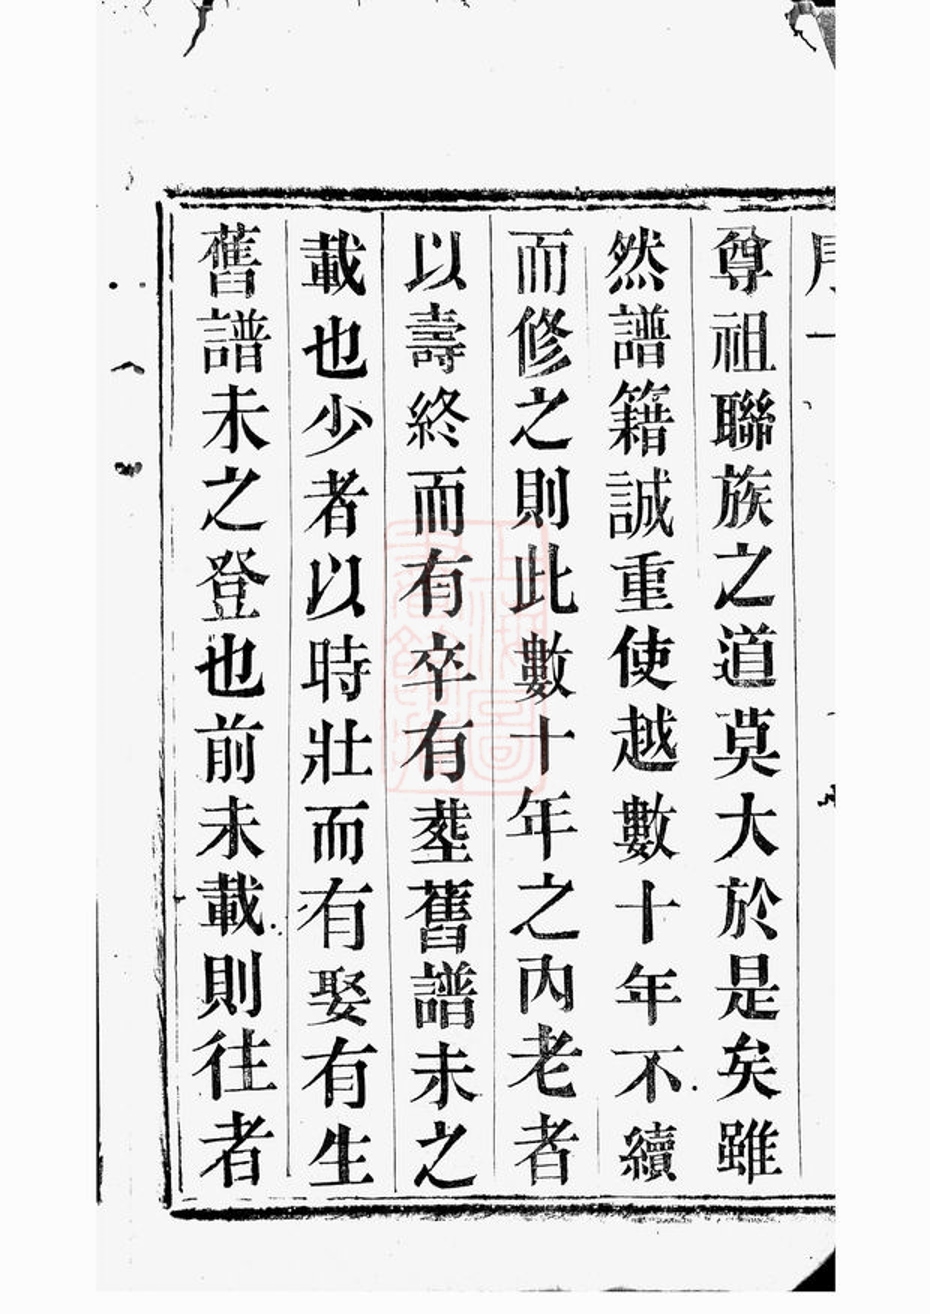 序一
尊祖聯族之道莫大於是矣雖
然譜籍誠重使越數十年不續
而修之則此數十年之内老者
以壽終而有卒有塟舊譜未之
載也少者以時壯而有娶有生
舊譜未之登也前未載則往者